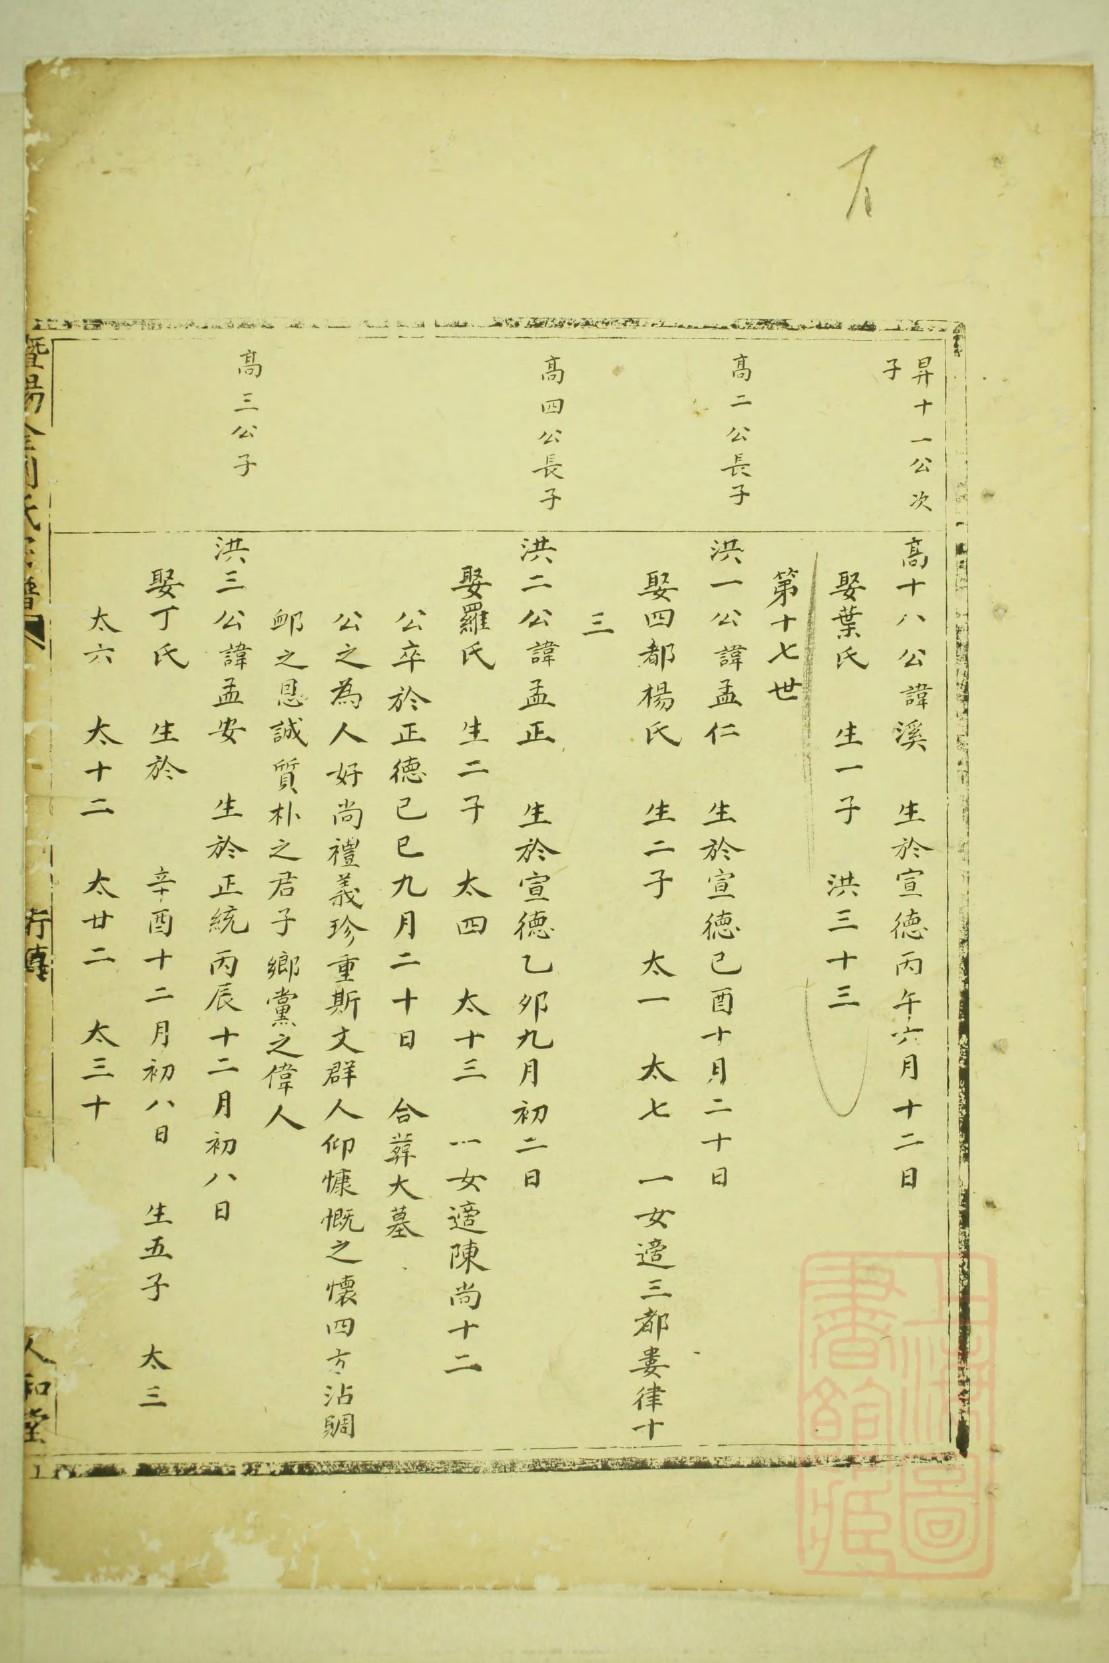 昇十一公次
子
高十八公諱溪 生於宣德丙午六月十二日
娶葉氏 生一子 洪三十三
第十七世
高二公長子
洪一公諱孟仁 生於宣德己酉十月二十日
娶四都楊氏 生二子 太一 太七 一女適三都婁律十
三
高四公長子
洪二公諱孟正 生於宣德乙夘九月初二日
娶羅氏 生二子 太四 太十三 一女適陳尚十二
公卒於正德已巳九月二十日 合葬大墓
公之為人好尚禮義珍重斯文群人仰慷慨之懷四方沾賙
䘏之恩誠質朴之君子鄉黨之偉人
高三公子
洪三公諱孟安 生於正統丙辰十二月初八日
娶丁氏 生於 辛酉十二月初八日 生五子 太三
太六 太十二 太廿二 太三十
暨陽 氏宗譜 行傳 人和堂
上海圖書館藏